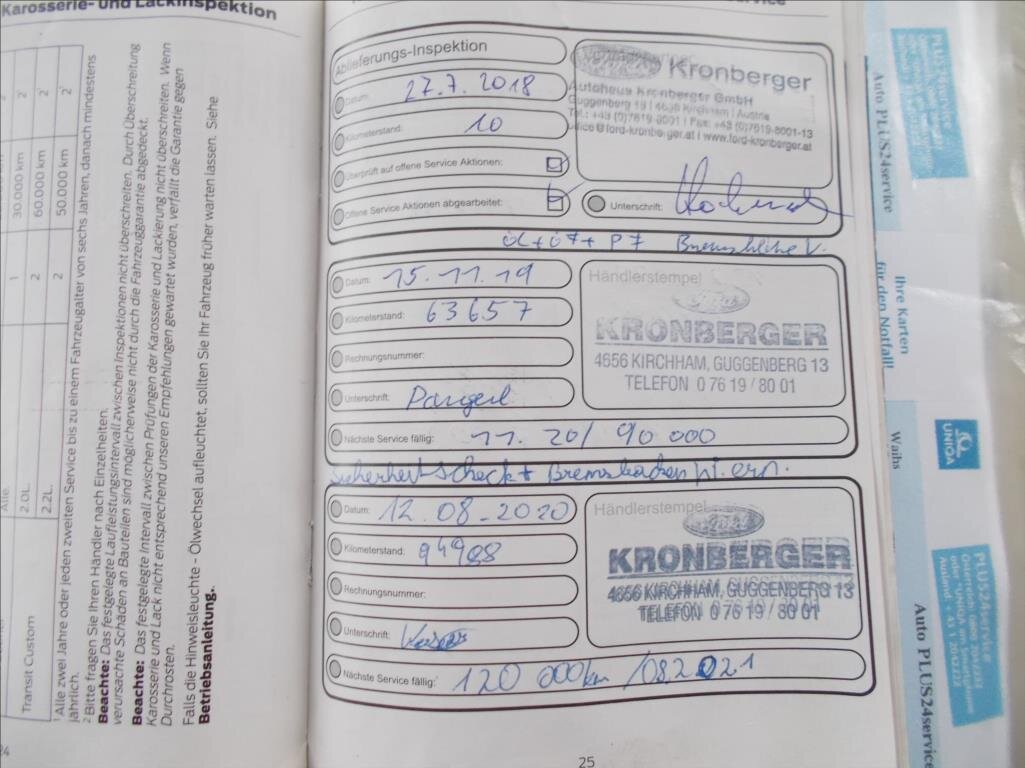 Karosserie- und Lackinspektion
Alle.
2.0L.
2.2L.
Transit Custom
1
2
2
30.000 km
60.000 km
50.000 km
2'
2'
2'
¹ Alle zwei Jahre oder jeden zweiten Service bis zu einem Fahrzeugalter von sechs Jahren, danach mindestens
jährlich.
² Bitte fragen Sie Ihren Händler nach Einzelheiten.
Beachte: Das festgelegte Laufleistungsintervall zwischen Inspektionen nicht überschreiten. Durch Überschreitung
verursachte Schäden an Bauteilen sind möglicherweise nicht durch die Fahrzeuggarantie abgedeckt.
Beachte: Das festgelegte Intervall zwischen Prüfungen der Karosserie und Lackierung nicht überschreiten. Wenn
Karosserie und Lack nicht entsprechend unseren Empfehlungen gewartet wurden, verfällt die Garantie gegen
Durchrosten.
Falls die Hinweisleuchte - Ölwechsel aufleuchtet, sollten Sie Ihr Fahrzeug früher warten lassen. Siehe
Betriebsanleitung.
24
Ablieferungs-Inspektion
Datum: 27.7. 2018
Kilometerstand: 10
Überprüft auf offene Service Aktionen:
Offene Service Aktionen abgearbeitet:
Kronberger
Autohaus Kronberger GmbH
Guggenberg 19 | 4656 Kirchham | Austria
Tel.: +43 (0)7619-8001 | Fax: +43 (0)7619-8001-13
office@ford-kronberger.at | www.ford-kronberger.at
Unterschrift:
Datum: 15.11.19
Kilometerstand: 63657
Rechnungsnummer:
Unterschrift: Pangerl
Nächste Service fällig: 11. 20/ 90 000
Händlerstempel
Ford
KRONBERGER
4656 KIRCHHAM, GUGGENBERG 13
TELEFON 0 76 19 / 80 01
Sicherheitscheck + Bremsbacken hi. ern.
Datum: 12.08.2020
Kilometerstand: 94988
Rechnungsnummer:
Unterschrift:
Nächste Service fällig: 120 000km /082021
Händlerstempel
Ford
KRONBERGER
4656 KIRCHHAM, GUGGENBERG 13
TELEFON 0 76 19 / 80 01
25
PLUS24service
Auto PLUS24service
Ihre Karten
für den Notfall!
UNIQA
Waihs
PLUS24service
Österreich: 0800 2042222
oder UNIQA am Smartphone
Ausland + 43 1 2042222
Auto PLUS24service